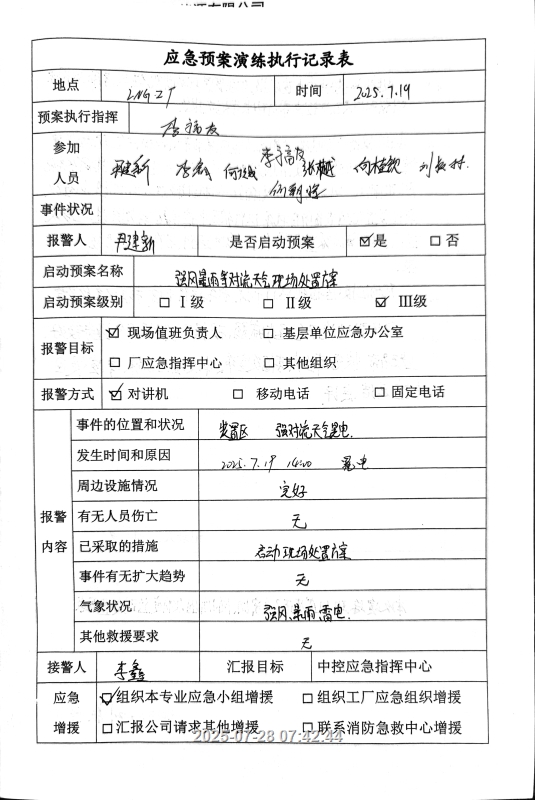 应急预案演练执行记录表
地点 LNG工厂 时间 2025.7.19
预案执行指挥 李福友
参加
人员
事件状况
报警人 尹建新 是否启动预案 ☑是 □否
启动预案名称 强风暴雨等对流天气现场处置方案
启动预案级别 □Ⅰ级 □Ⅱ级 ☑Ⅲ级
报警目标 ☑现场值班负责人 □基层单位应急办公室
□厂应急指挥中心 □其他组织
报警方式 ☑对讲机 □移动电话 □固定电话
报警内容
事件的位置和状况 装置区 强对流天气雷电.
发生时间和原因 2025.7.19 14:00 雷电
周边设施情况 完好
有无人员伤亡 无
已采取的措施 启动现场处置方案
事件有无扩大趋势 无
气象状况 强风.暴雨.雷电.
其他救援要求 无
接警人 李鑫 汇报目标 中控应急指挥中心
应急增援
☑组织本专业应急小组增援 □组织工厂应急组织增援
□汇报公司请求其他增援 □联系消防急救中心增援
2025-07-28 07:42:44